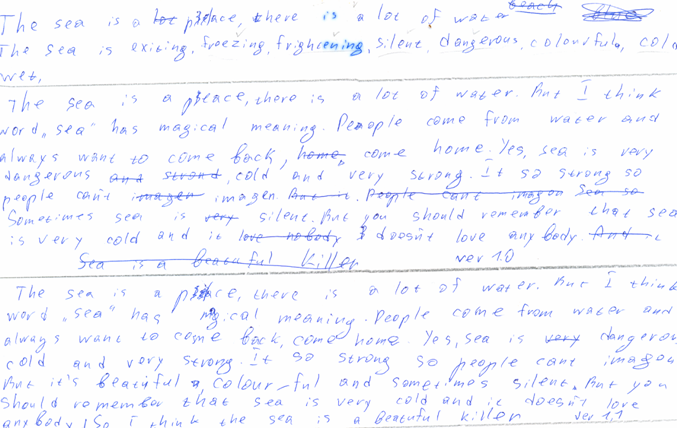 The sea is a lot place, there is a lot of water beach
The sea is exiting, freezing, frightening, silent, dangerous, colourful, cold
wet,
The sea is a place, there is a lot of water. But I think
word „sea" has magical meaning. People come from water and
always want to come back, home, come home. Yes, sea is very
dangerous and strond, cold and very strong. It so strong so
people can't imagen imagen. But it. People cant imagen Sea so
Sometimes sea is very silent. But you should remember that sea
is very cold and it love nobody doesn't love any body. And
Sea is a beautuful killer ver 1.0
The sea is a place, there is a lot of water. But I think
word „sea" has magical meaning. People come from water and
always want to come back, come home. Yes, sea is very dangerous
cold and very strong. It so strong so people cant imagen
But it's beautyful, colour-ful and sometimes silent. But you
should remember that sea is very cold and it doesn't love
any body! So I think the sea is a beautuful killer ver 1,1